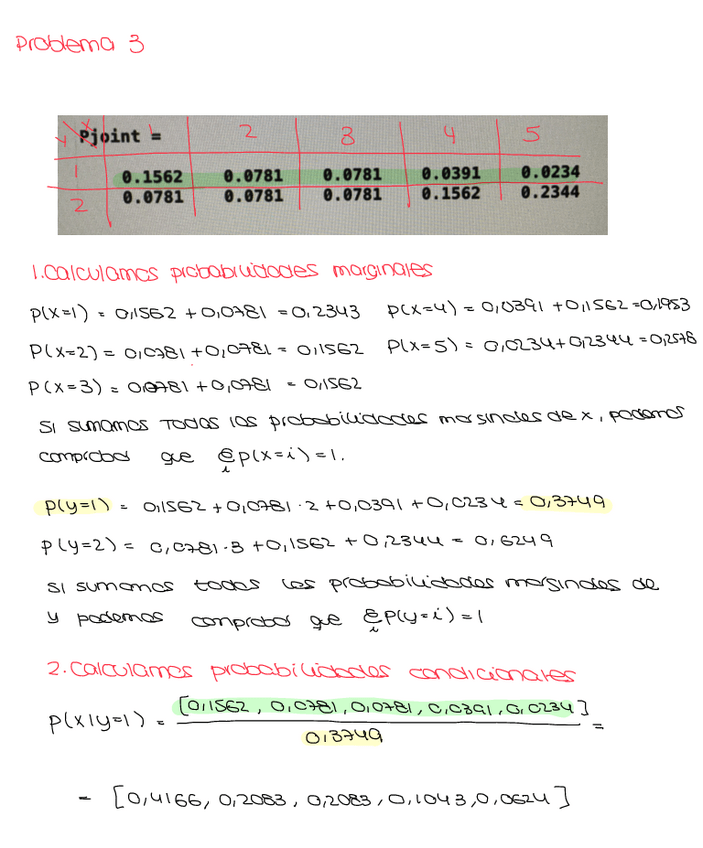 Problema 3
Y X Pjoint = 1 2 3 4 5
1 0.1562 0.0781 0.0781 0.0391 0.0234
2 0.0781 0.0781 0.0781 0.1562 0.2344
1. Calculamos probabilidades marginales
P(X=1) = 0,1562 + 0,0781 = 0,2343 P(X=4) = 0,0391 + 0,1562 = 0,1953
P(X=2) = 0,0781 + 0,0781 = 0,1562 P(X=5) = 0,0234 + 0,2344 = 0,2578
P(X=3) = 0,0781 + 0,0781 = 0,1562
Si sumamos todas las probabilidades marginales de x, podemos
comprobar que Σ p(x=i) = 1.
i
p(y=1) = 0,1562 + 0,0781 · 2 + 0,0391 + 0,0234 = 0,3749
p(y=2) = 0,0781 · 3 + 0,1562 + 0,2344 = 0,6249
Si sumamos todas las probabilidades marginales de
y podemos comprobar que Σ p(y=i) = 1
i
2. Calculamos probabilidades condicionales
p(x|y=1) = [0,1562, 0,0781, 0,0781, 0,0391, 0,0234] =
0,3749
= [0,4166, 0,2083, 0,2083, 0,1043, 0,0624]